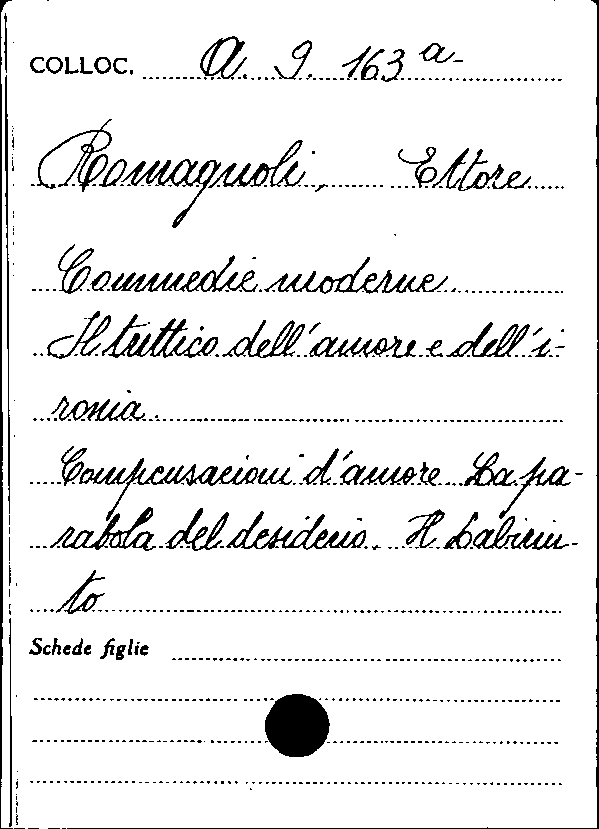 COLLOC. A. 9. 163 a-
Romagnoli, Ettore
Commedie moderne.
Il trittico dell'amore e dell'i-
ronia.
Compensacioni d'amore La pa-
rabola del desiderio. Il Labirin-
to
Schede figlie